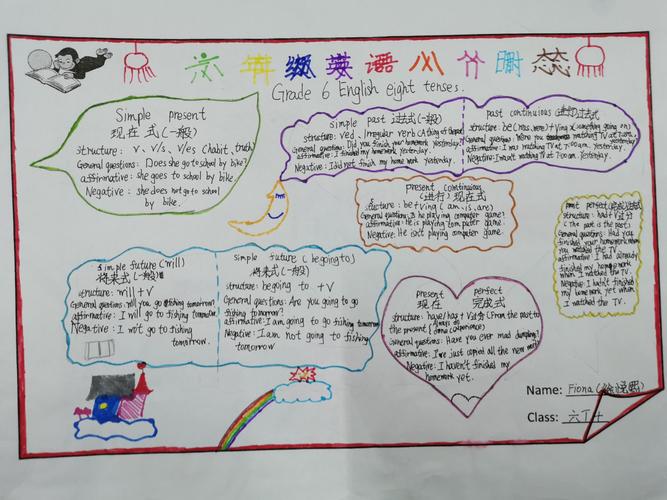 六年级英语八个时态
Grade 6 English eight tenses.
Simple present
现在式(一般)
structure: v、v/s、v/es (habit、truth)
General questions: Does she go to school by bike?
affirmative: she goes to school by bike.
Negative: she does not go to school
by bike.
simple past 过去式(一般)
structure: ved、Irregular verb (A thing of the past)
General questions: Did you finish your homework yesterday?
affirmative: I finished my homework yesterday.
Negative: I did not finish my home work yesterday.
past continuious (进行)过去式
structure: be (was、were)+Ving (something going on)
General questions: Were you watching TV at 7:00am yesterday?
affirmative: I was watching TV at 7:00am. Yesterday.
Negative: I wasn't watching TV at 7:00am. Yesterday.
present continuous
(进行)现在式
structure: be+ving (am、is、are)
General questions: Is he playing computer game?
affirmative: He is playing computer game.
Negative: He isn't playing computer game.
past perfect
structure: had+V过分
(The past is the past)
General questions: Had you
finished your homework when
you watched the TV.
affirmative: I had already
finished my home work
when I watched the TV.
Negative: I hadn't finished
my homework yet when
I watched the TV.
simple future (will)
将来式(一般)
structure: will+V
General questions: Will you go fishing tomorrow?
affirmative: I will go to fishing tomorrow.
Negative: I won't go to fishing
tomorrow.
simple future (begoingto)
将来式(一般)
structure: begoing to +V
General questions: Are you going to go
fishing tomorrow?
affirmative: I am going to go fishing tomorrow.
Negative: I am not going to fishing
tomorrow
present perfect
现在 完成式
structure: have/has+V过分 (From the past to
the present
General questions: Have you ever mad dumpling?
affirmative: I've just copied all the new
Negative: I haven't finished my
homework yet.
Name: Fiona
Class: 六丁十